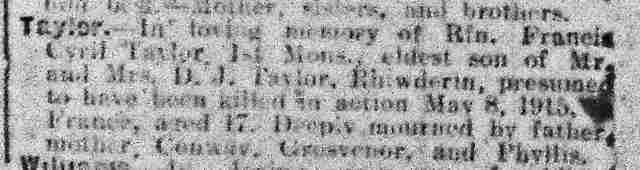 Mother, sisters, and brothers.
Taylor.—In loving memory of Rfn. Francis
Cyril Taylor, 1st Mons., eldest son of Mr.
and Mrs. D. J. Taylor, Rhiwderin, presumed
to have been killed in action May 8, 1915,
France, aged 17. Deeply mourned by father,
mother, Conway, Grosvenor, and Phyllis.